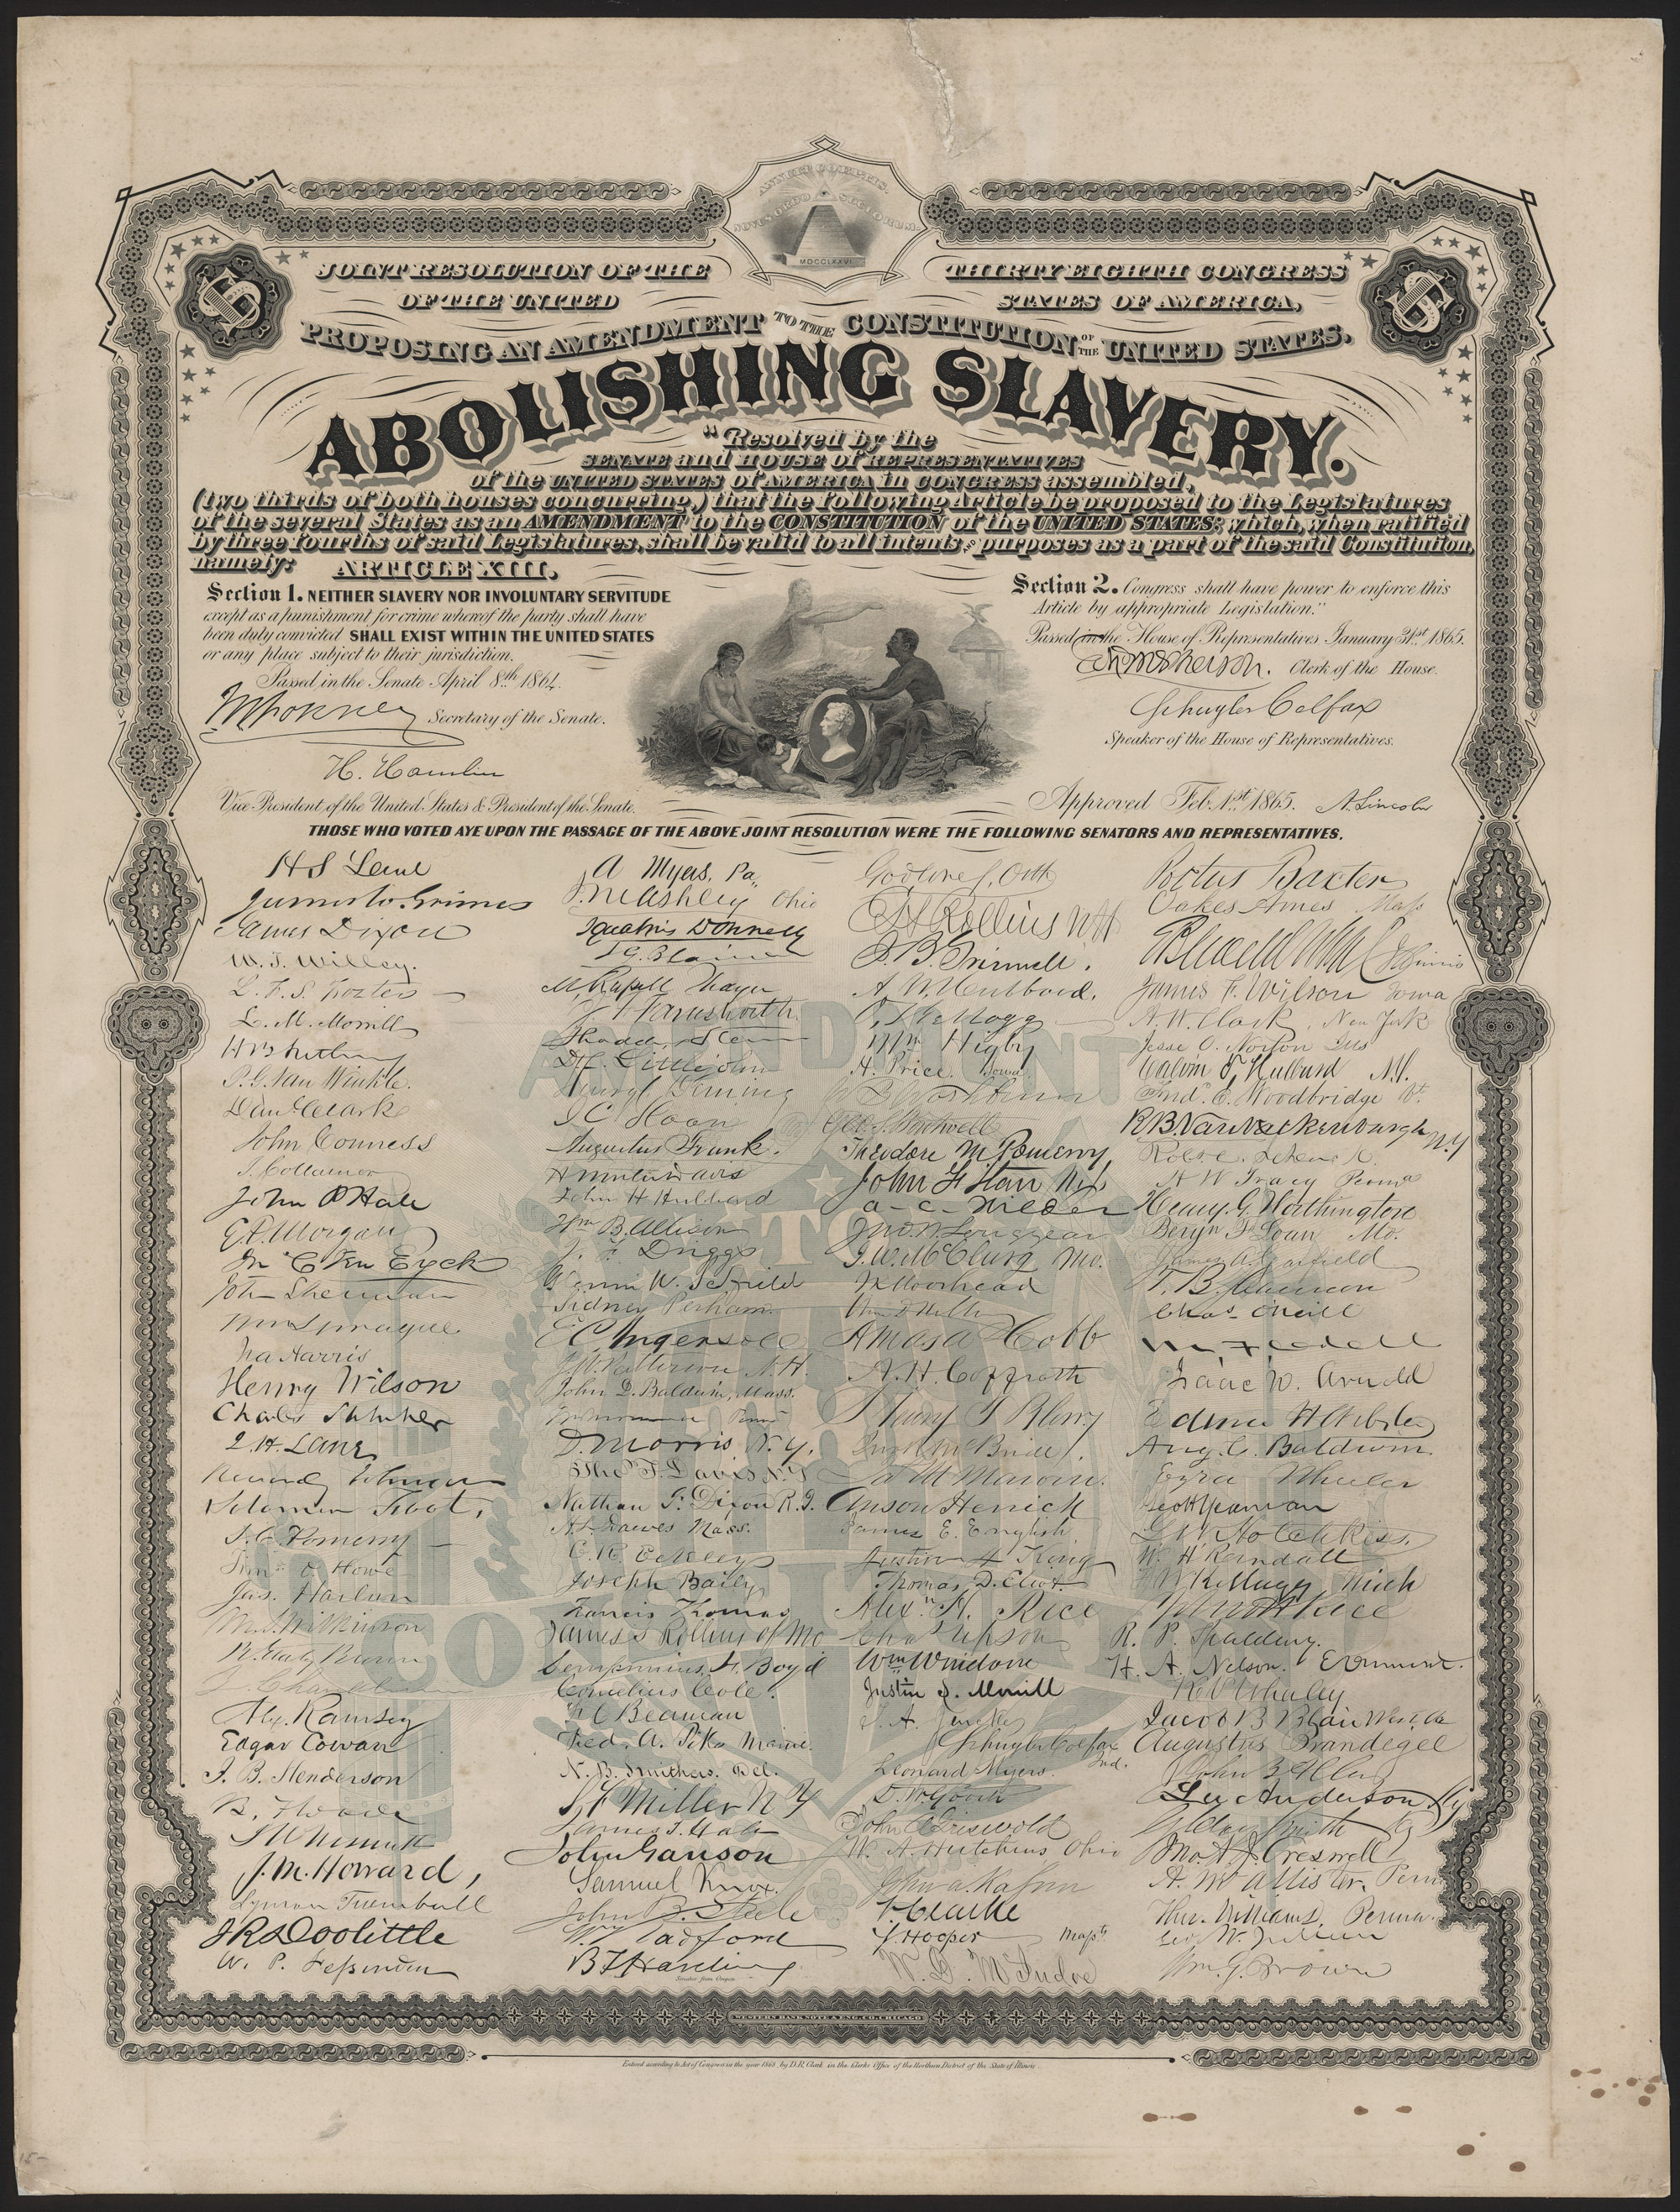 ANNUIT COEPTIS.
NOVUS ORDO SECLORUM.
MDCCLXXVI
US
US
JOINT RESOLUTION OF THE THIRTY EIGHTH CONGRESS
OF THE UNITED STATES OF AMERICA,
PROPOSING AN AMENDMENT TO THE CONSTITUTION OF THE UNITED STATES.
ABOLISHING SLAVERY.
"Resolved by the
SENATE and HOUSE of REPRESENTATIVES
of the UNITED STATES of AMERICA in CONGRESS assembled,
(two thirds of both houses concurring,) that the following Article be proposed to the Legislatures
of the several States as an AMENDMENT to the CONSTITUTION of the UNITED STATES; which, when ratified
by three fourths of said Legislatures, shall be valid to all intents and purposes as a part of the said Constitution,
namely: ARTICLE XIII.
Section 1. NEITHER SLAVERY NOR INVOLUNTARY SERVITUDE
except as a punishment for crime wherof the party shall have
been duly convicted SHALL EXIST WITHIN THE UNITED STATES
or any place subject to their jurisdiction.
Passed in the Senate April 8th 1864.
Secretary of the Senate.
H. Hamlin
Vice President of the United States & President of the Senate.
Section 2. Congress shall have power to enforce this
Article by appropriate Legislation."
Passed in the House of Representatives January 31st 1865.
McPherson. Clerk of the House.
Schuyler Colfax
Speaker of the House of Representatives.
Approved Feb. 1st 1865. A. Lincoln
THOSE WHO VOTED AYE UPON THE PASSAGE OF THE ABOVE JOINT RESOLUTION WERE THE FOLLOWING SENATORS AND REPRESENTATIVES.
H S Lane
James W. Grimes
James Dixon
W. T. Willey.
L. F. S. Foster
L. M. Morrill
P. G. Van Winkle.
Dan Clark
John Conness
J. Collamer
John P Hale
E. D. Morgan
Jn C Ten Eyck
John Sherman
Wm Sprague
Ira Harris
Henry Wilson
Charles Sumner
J. H. Lane
Reverdy Johnson
Solomon Foot,
S. C. Pomeroy
T. O. Howe
Jas. Harlan
M. S. Wilkinson
B. Gratz Brown
Z. Chandler
Alex. Ramsey
Edgar Cowan
J. B. Henderson
B. F. Wade
J W Nesmith
J. M. Howard,
Lyman Trumbull
J R Doolittle
W. P. Fessenden
A Myers, Pa
J. M Ashley Ohio
Ignatius Donnelly
J G. Blaine
M. Russell Thayer
J. F. Farnsworth
Thaddeus Stevens
D C Littlejohn
Henry C Deming
Augustus Frank.
H Winter Davis
John H Hubbard
Wm B. Allison
J. F. Driggs
Glenni W. Scofield
Sidney Perham.
E C Ingersoll
J. W. Patterson N. H.
John D. Baldwin, Mass.
D. Morris N. Y.
Tho T. Davis N. Y
Nathan F. Dixon R. I.
H L Dawes Mass.
E. R. Eckley
Joseph Baily
Francis Thomas
James S Rollins of Mo
Sempronius H. Boyd
Cornelius Cole.
F C Beaman
Fred. A. Pike Maine.
N. B. Smithers. Del.
S F Miller N Y
James T. Hale
John Ganson
Samuel Knox.
John B. Steele
W. Radford
B F Harding
Senator from Oregon
Godlove S. Orth
E H Rollins N H
J. B. Grinnell.
A. W. Hubbard.
O. Kellogg
Wm Higby
H. Price. Iowa
E. B. Washburne
Geo S. Boutwell
Theodore M. Pomeroy
John F Starr N J
A. C. Wilder
Jno. W. Longyear
J. W. McClurg Mo.
J K Moorhead
Amasa Cobb
A. H. Coffroth
Henry T Blow
J M Marvin.
Anson Herrick
James E. English
Austin A King
Thomas D. Eliot
Alex H. Rice
Chas Upson
Wm Windom
Justin S. Morrill
Schuyler Colfax Ind.
Leonard Myers.
D. W. Gooch
John A Griswold
W. A. Hutchins Ohio
John A. Kasson
F. Clarke
S Hooper Massts
W. D. McIndoe
Portus Baxter
Oakes Ames Mass
James F. Wilson Iowa
A. W. Clark, New York
Jesse O. Norton Ills
Calvin T. Hulburd N. Y.
Fred. E. Woodbridge Vt.
R B Van Valkenburgh N. Y
Robt. C. Schenck
H W Tracy Penna
Henry G. Worthington
Benjn F. Loan Mo.
James A. Garfield
T. B. Shannon
Chas O'Neill
Isaac N. Arnold
Edwin H Webster
Aug. C. Baldwin
Ezra Wheeler
Geo H Yeaman
G W Hotchkiss.
W. H Randall
F W Kellogg Mich
John H Rice
R. P. Spalding.
H. A. Nelson.
K V Whaley
Jacob B Blair West Va
Augustus Brandegee
John B Alley
Lu Anderson Ky
G Clay Smith Ky
Jno. A. J. Creswell
A. McAllister, Penn
Thos. Williams, Penna.
Geo W. Julian
Wm. G. Brown
AMENDMENT
TO THE
CONSTITUTION
WESTERN BANK NOTE & ENG. CO. CHICAGO
Entered according to Act of Congress in the year 1868 by D. R. Clark in the Clerks Office of the Northern District of the State of Illinois